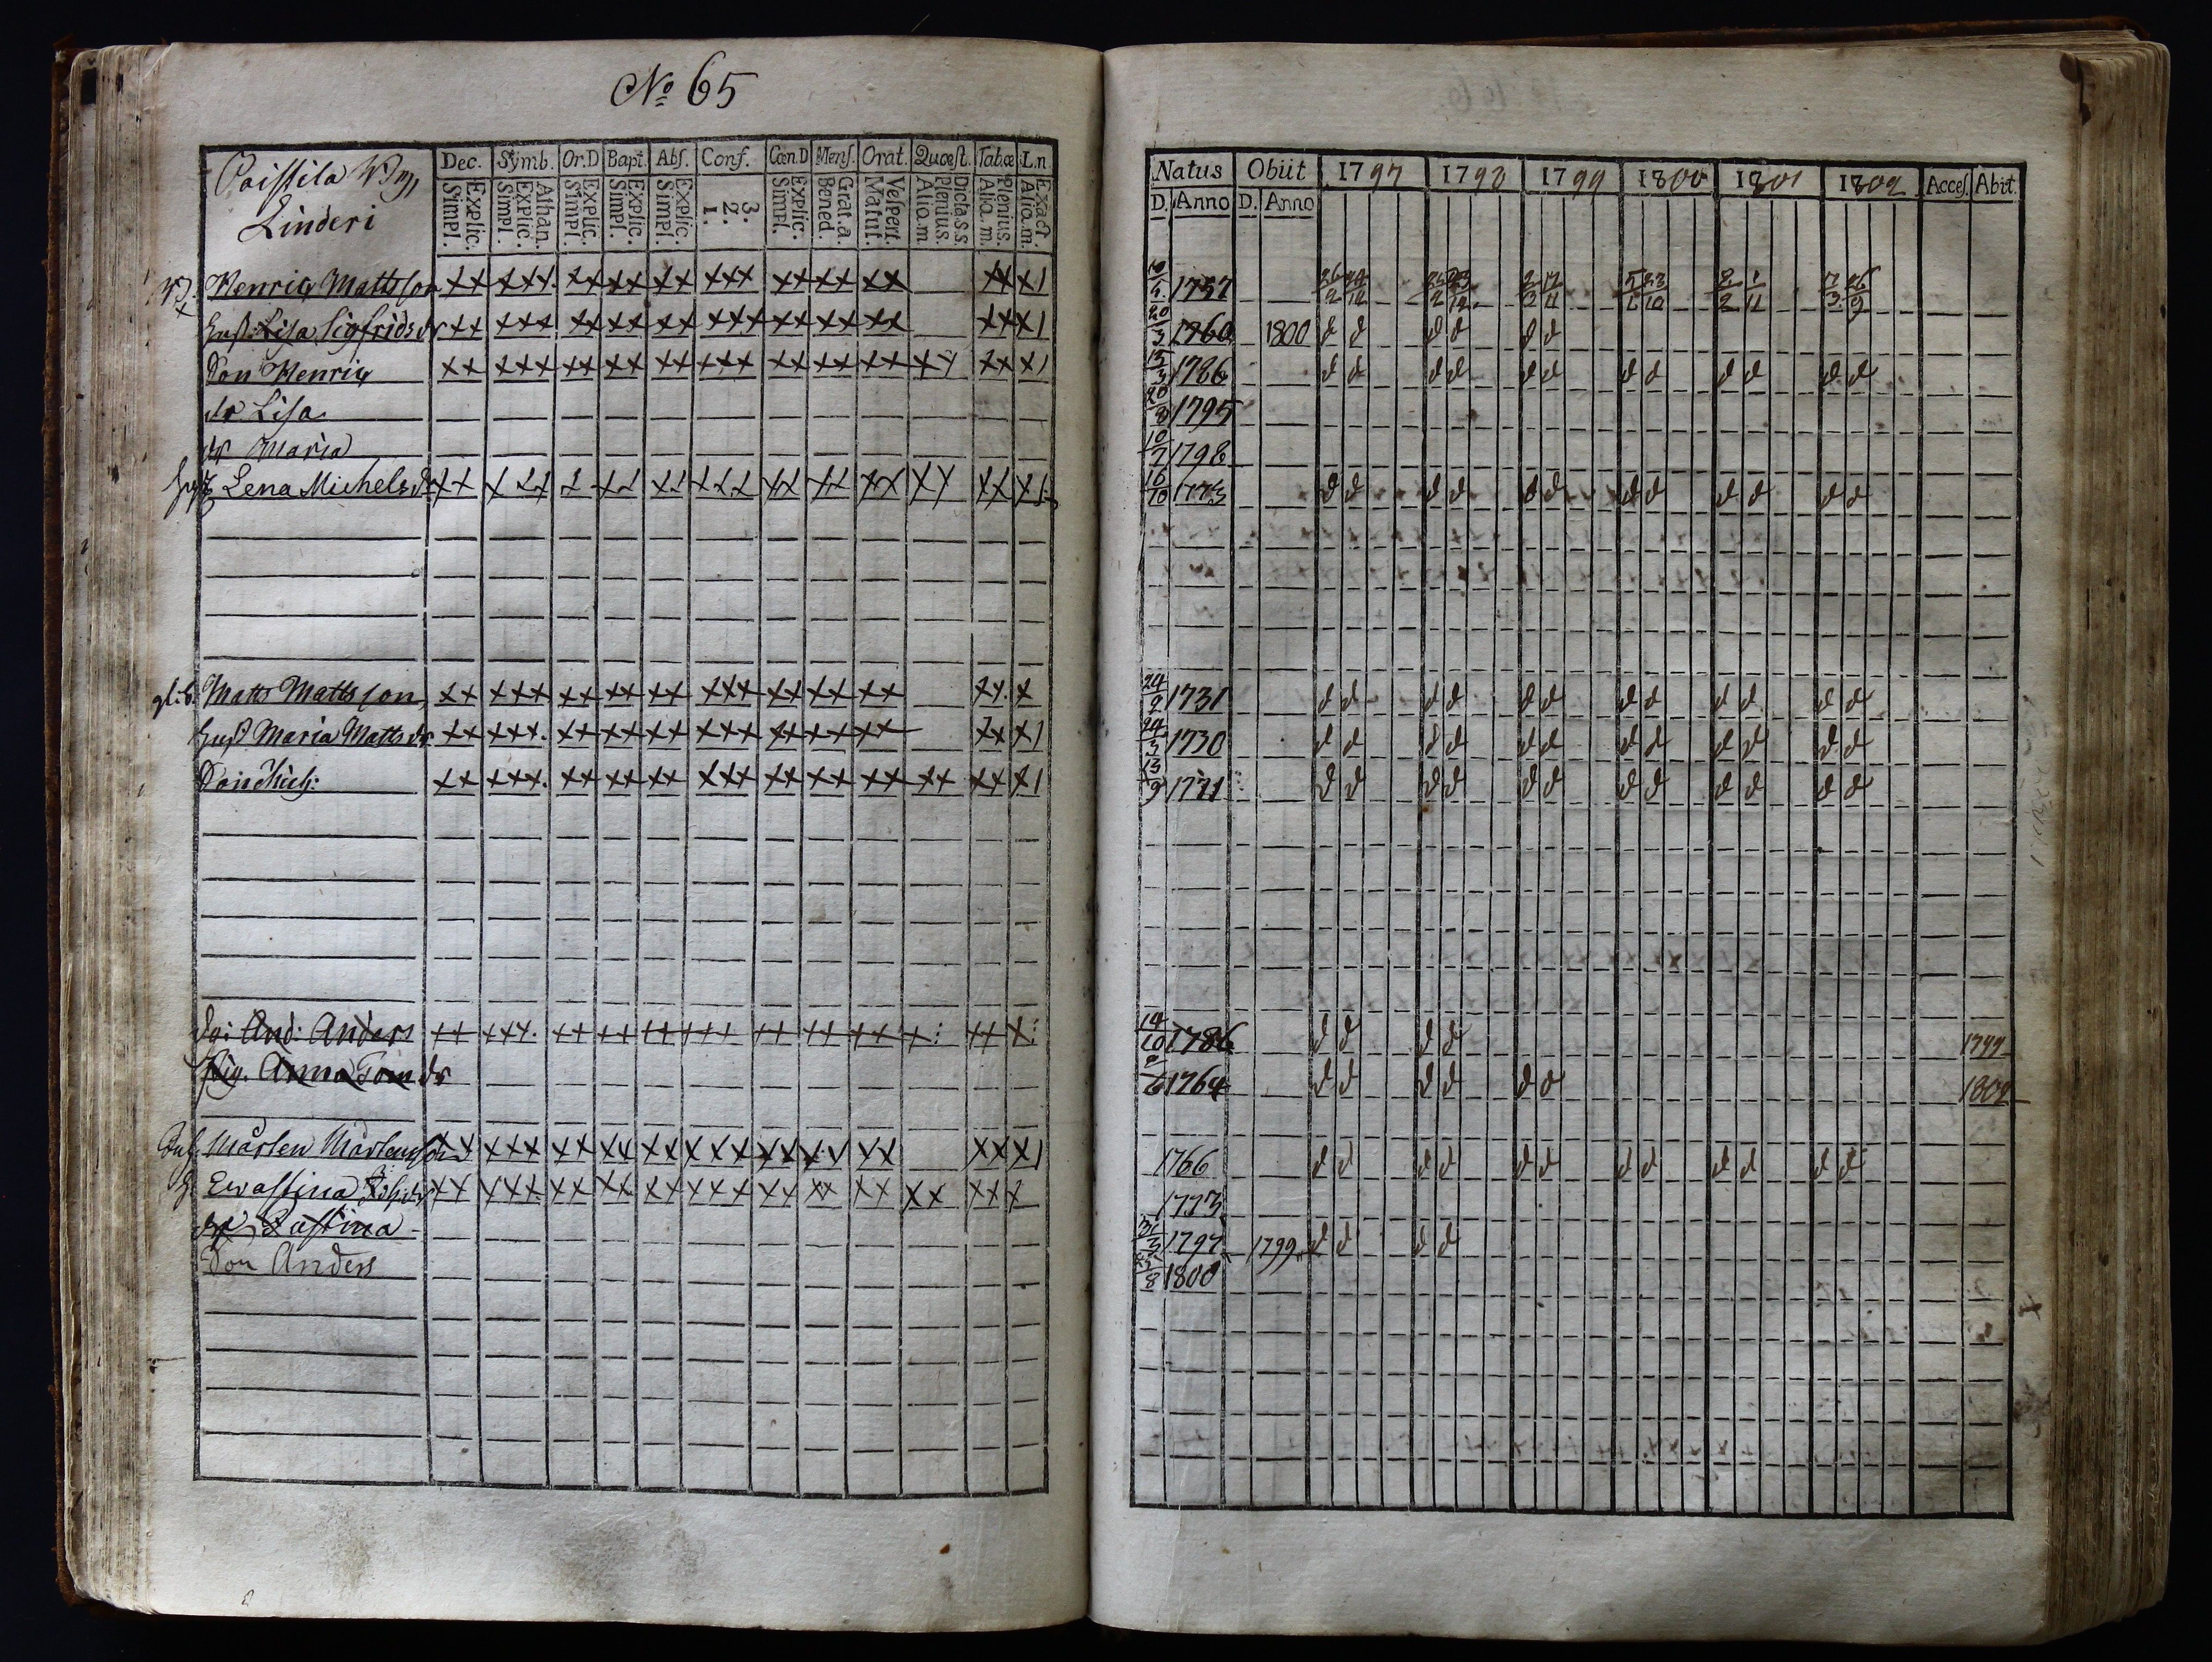 No 65
Linderi
Dec. Symb. Or.D Bapt. Abſ. Conf. Cœn.D Menſ. Orat. Quæſt. Tabæ L.n
Explic. Simpl.
Athan. Explic. Simpl.
Explic. Simpl.
Explic. Simpl.
Explic. Simpl.
3. 2. 1.
Explic. Simpl.
Grat. a. Bened.
Veſpert. Matut.
Dicta.s.s. Plenius. Aliq.m.
Plenius. Aliq.m.
Exact. Aliq.m.
Henric Mattsson xx xxx xx xx xx xxx xx xx xx xx x1
Hust: Lisa Sigfridsdr xx xxx xx xx xx xxx xx xx xx xx x1
Son Henric xx xxx xx xx xx xxx xx xx xx xx xx x1
dr Lisa
dr Maria
Lena Michelsdr xx xxx x xx xx xxx xx xx xx xx xx x1
Matts Mattsson xx xxx xx xx xx xxx xx xx xx xx x
Hust Maria Mattsdr xx xxx xx xx xx xxx xx xx xx xx x1
Son Mich: xx xxx xx xx xx xxx xx xx xx xx xx x1
And: Anders xx xxx xx xx xx xxx xx xx xx x: xx x:
Pig. Anna Tom dr
Mårten Mårtensson xx xxx xx xx xx xxx xx xx xx xx x1
Ewastina xx xxx xx xx xx xxx xx xx xx xx xx x
dr Justina
Son Anders
Natus Obiit 1797 1798 1799 1800 1801 1802 Acceſ. Abit.
D. Anno D. Anno
1757
20/3 1760 1800 d d d d d d
15/3 1786 d d d d d d d d d d d d
20/8 1795
10/7 1798
16/10 1773 d d d d d d d d d d d d
24/2 1731 d d d d d d d d d d d d
24/3 1730 d d d d d d d d d d d d
13/9 1771 d d d d d d d d d d d d
14/10 1786 d d d d 1799
1764 d d d d d d 1802
1766 d d d d d d d d d d d d
1773
1797 1799 d d d d
1800